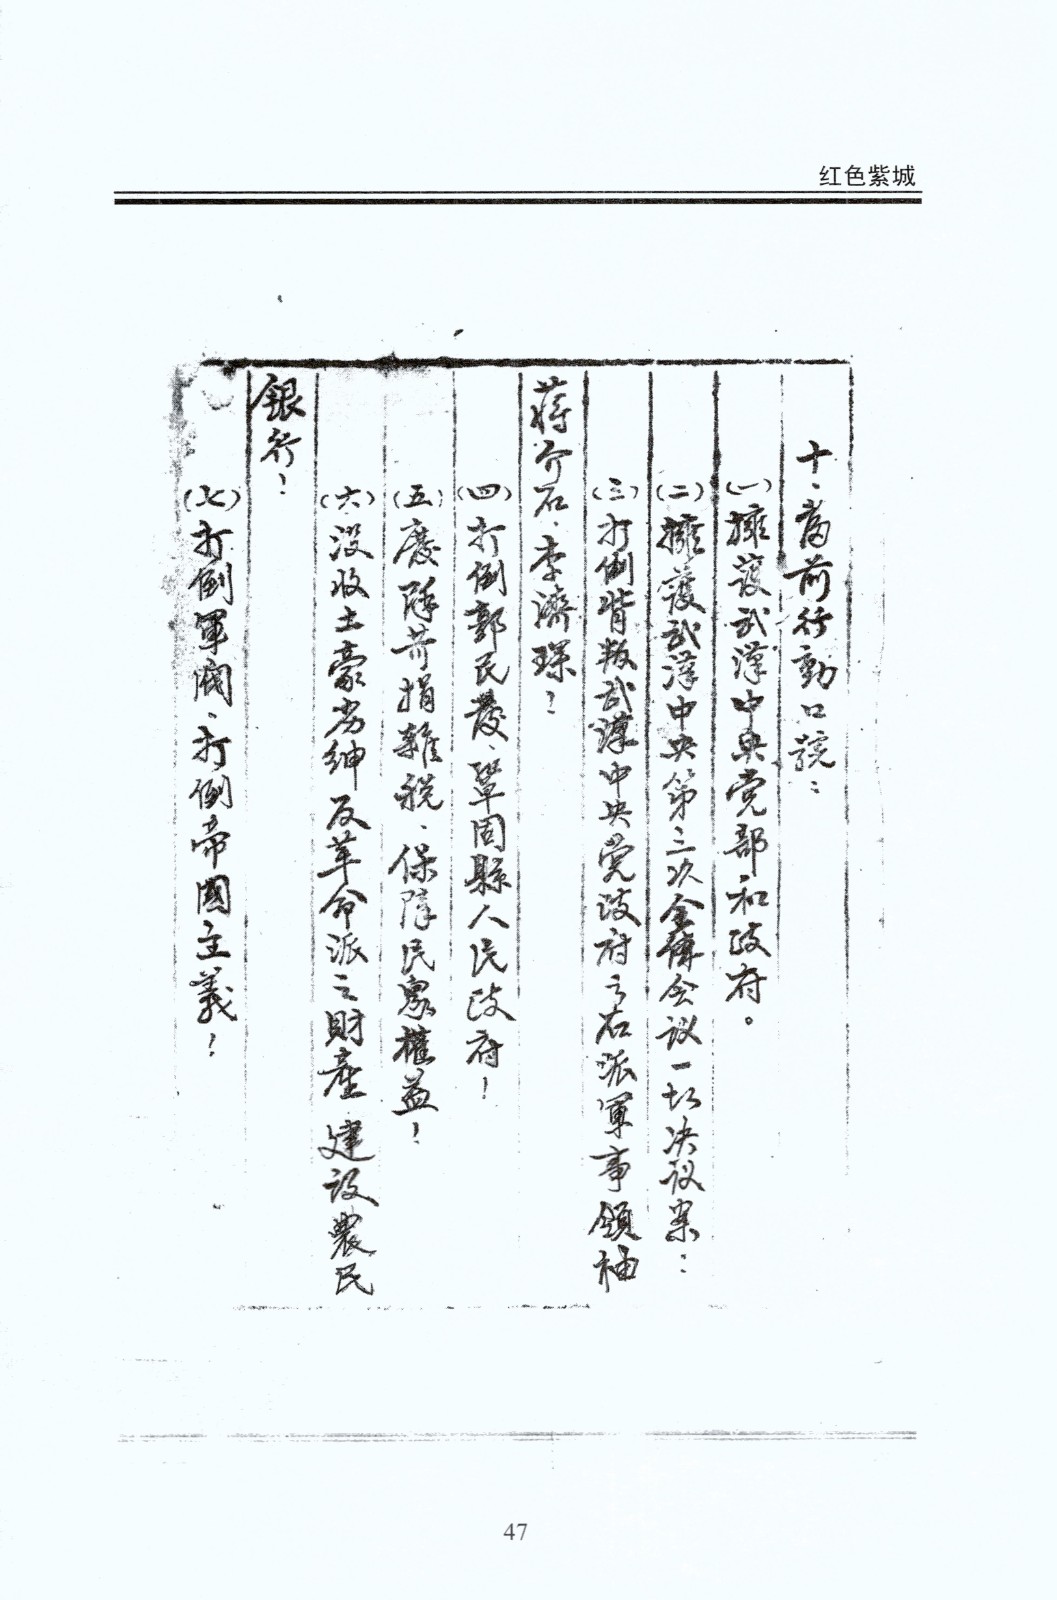 红色紫城
十、當前行動口號：
(一)擁護武漢中央党部和政府。
(二)擁護武漢中央第三次全体会议一切决议案：
(三)打倒背叛武漢中央党政府之右派軍事領袖
蔣介石、李濟琛！
(四)打倒郭民發、鞏固縣人民政府！
(五)廢除苛捐雜税、保障民衆權益！
(六)没收土豪劣紳反革命派之財產 建設農民
銀行！
(七)打倒軍閥、打倒帝國主義！
47